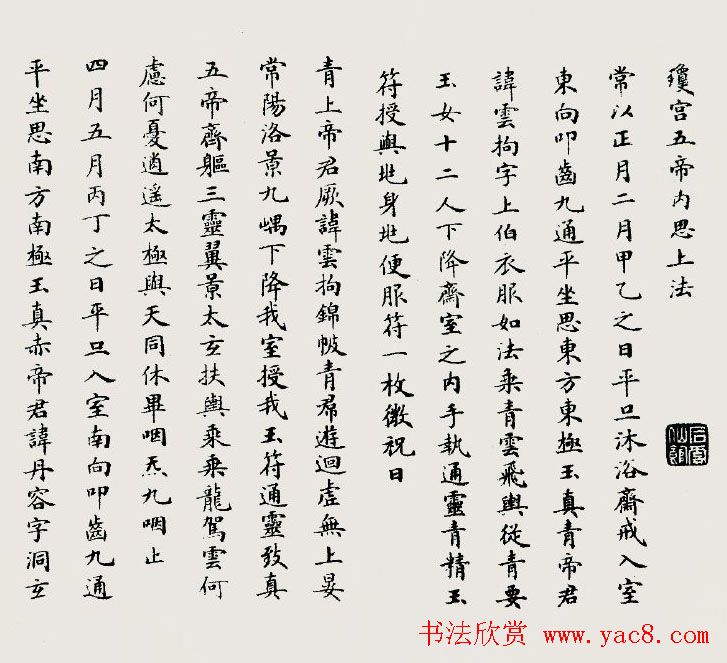 瓊宮五帝內思上法
常以正月二月甲乙之日平旦沐浴齋戒入室
東向叩齒九通平坐思東方東極玉真青帝君
諱雲拘字上伯衣服如法乘青雲飛輿從青要
玉女十二人下降齋室之內手執通靈青精玉
符授與兆身兆便服符一枚微祝曰
青上帝君厥諱雲拘錦帔青帬遊迴虛無上晏
常陽洛景九嵎下降我室授我玉符通靈致真
五帝齊軀三靈翼景太玄扶輿乘乘龍駕雲何
慮何憂逍遙太極與天同休畢咽炁九咽止
四月五月丙丁之日平旦入室南向叩齒九通
平坐思南方南極玉真赤帝君諱丹容字洞玄
书法欣赏 www.yac8.com